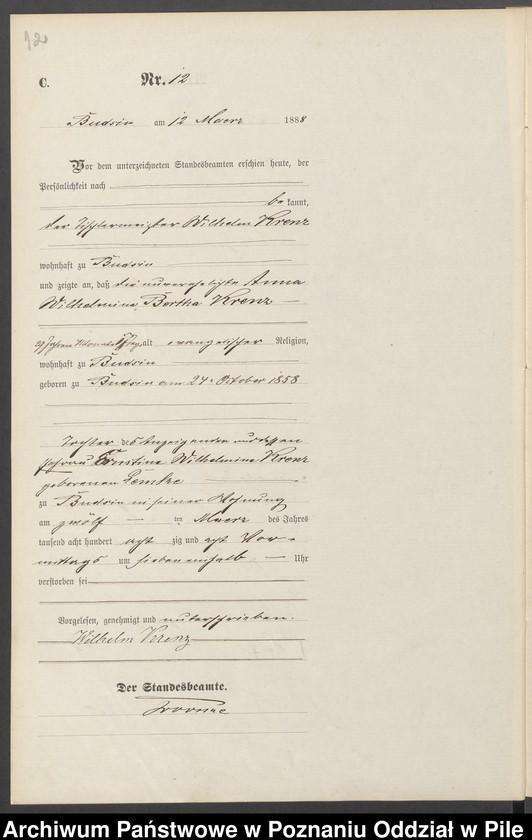 12
C.
Nr. 12
Budsin am 12 Maerz 1888
Vor dem unterzeichneten Standesbeamten erschien heute, der
Persönlichkeit nach
be kannt,
der Tischlermeister Wilhelm Krenz
wohnhaft zu Budsin
und zeigte an, daß die unverehelichte Anna
Wilhelmine Bertha Krenz
29 Jahre 4 Monate alt evangelischer Religion,
wohnhaft zu Budsin
geboren zu Budsin am 24. October 1858
Tochter des Anzeigenden und dessen
Ehefrau Ernstine Wilhelmine Krenz
geborenen Lemke
zu Budsin in seiner Wohnung
am zwölf ten Maerz des Jahres
tausend acht hundert acht zig und acht Vor-
mittags um sieben einhalb Uhr
verstorben sei
Vorgelesen, genehmigt und unterschrieben.
Wilhelm Krenz
Der Standesbeamte.
Archiwum Państwowe w Poznaniu Oddział w Pile